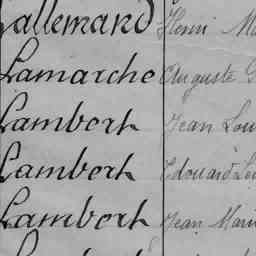 Lallemand Henri
Lamarche Auguste
Lambert Jean
Lambert Edouard
Lambert Jean